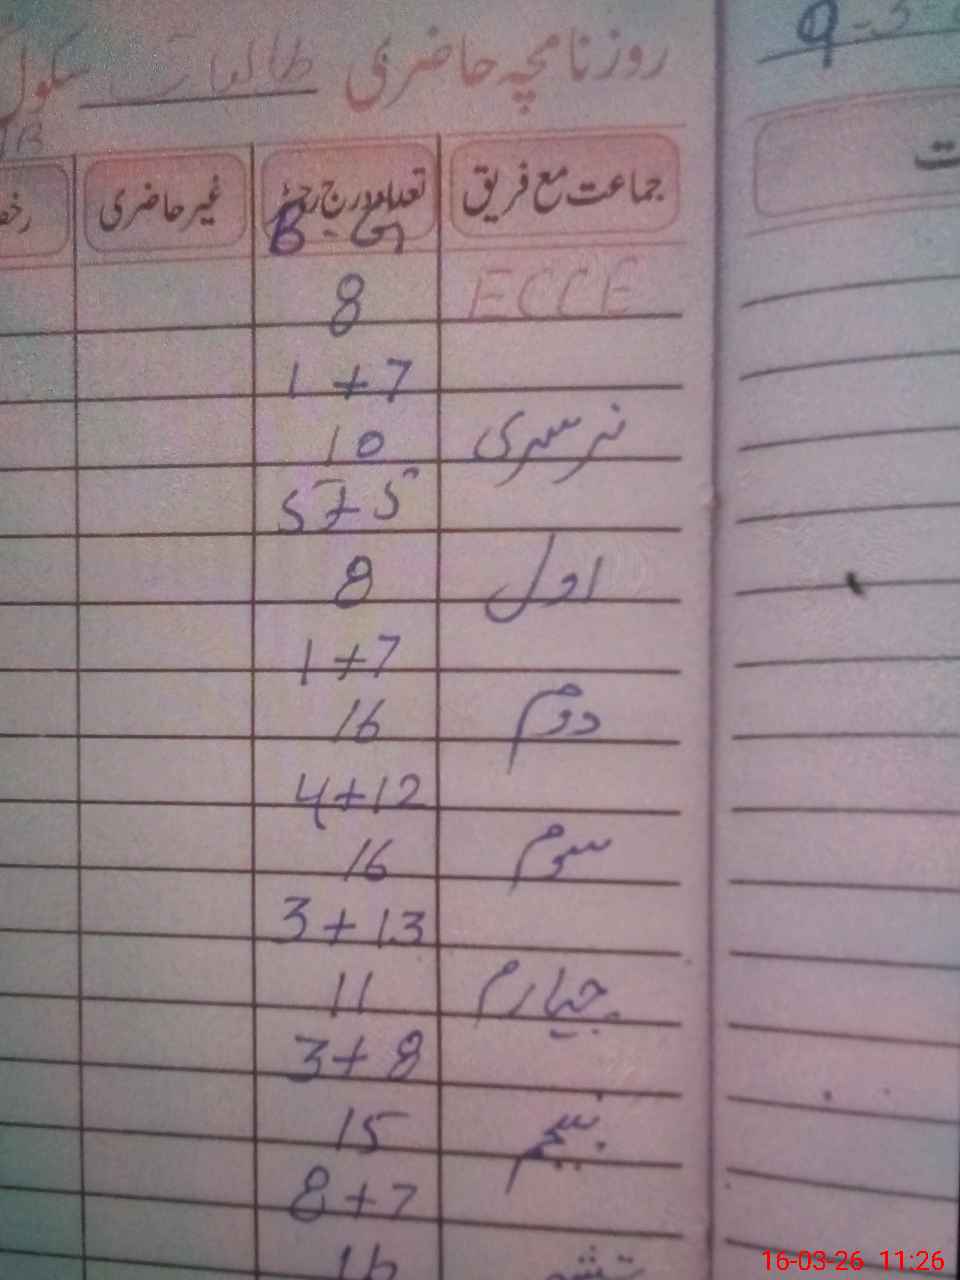 9-3
روزنامچہ حاضری طالبات سکول
جماعت مع فریق تعداد درج رجسٹر غیر حاضری
B - G
ECCE 8
1+7
نرسری 10
5+5
اول 8
1+7
دوم 16
4+12
سوم 16
3+13
چہارم 11
3+8
پنجم 15
8+7
16
16-03-26 11:26